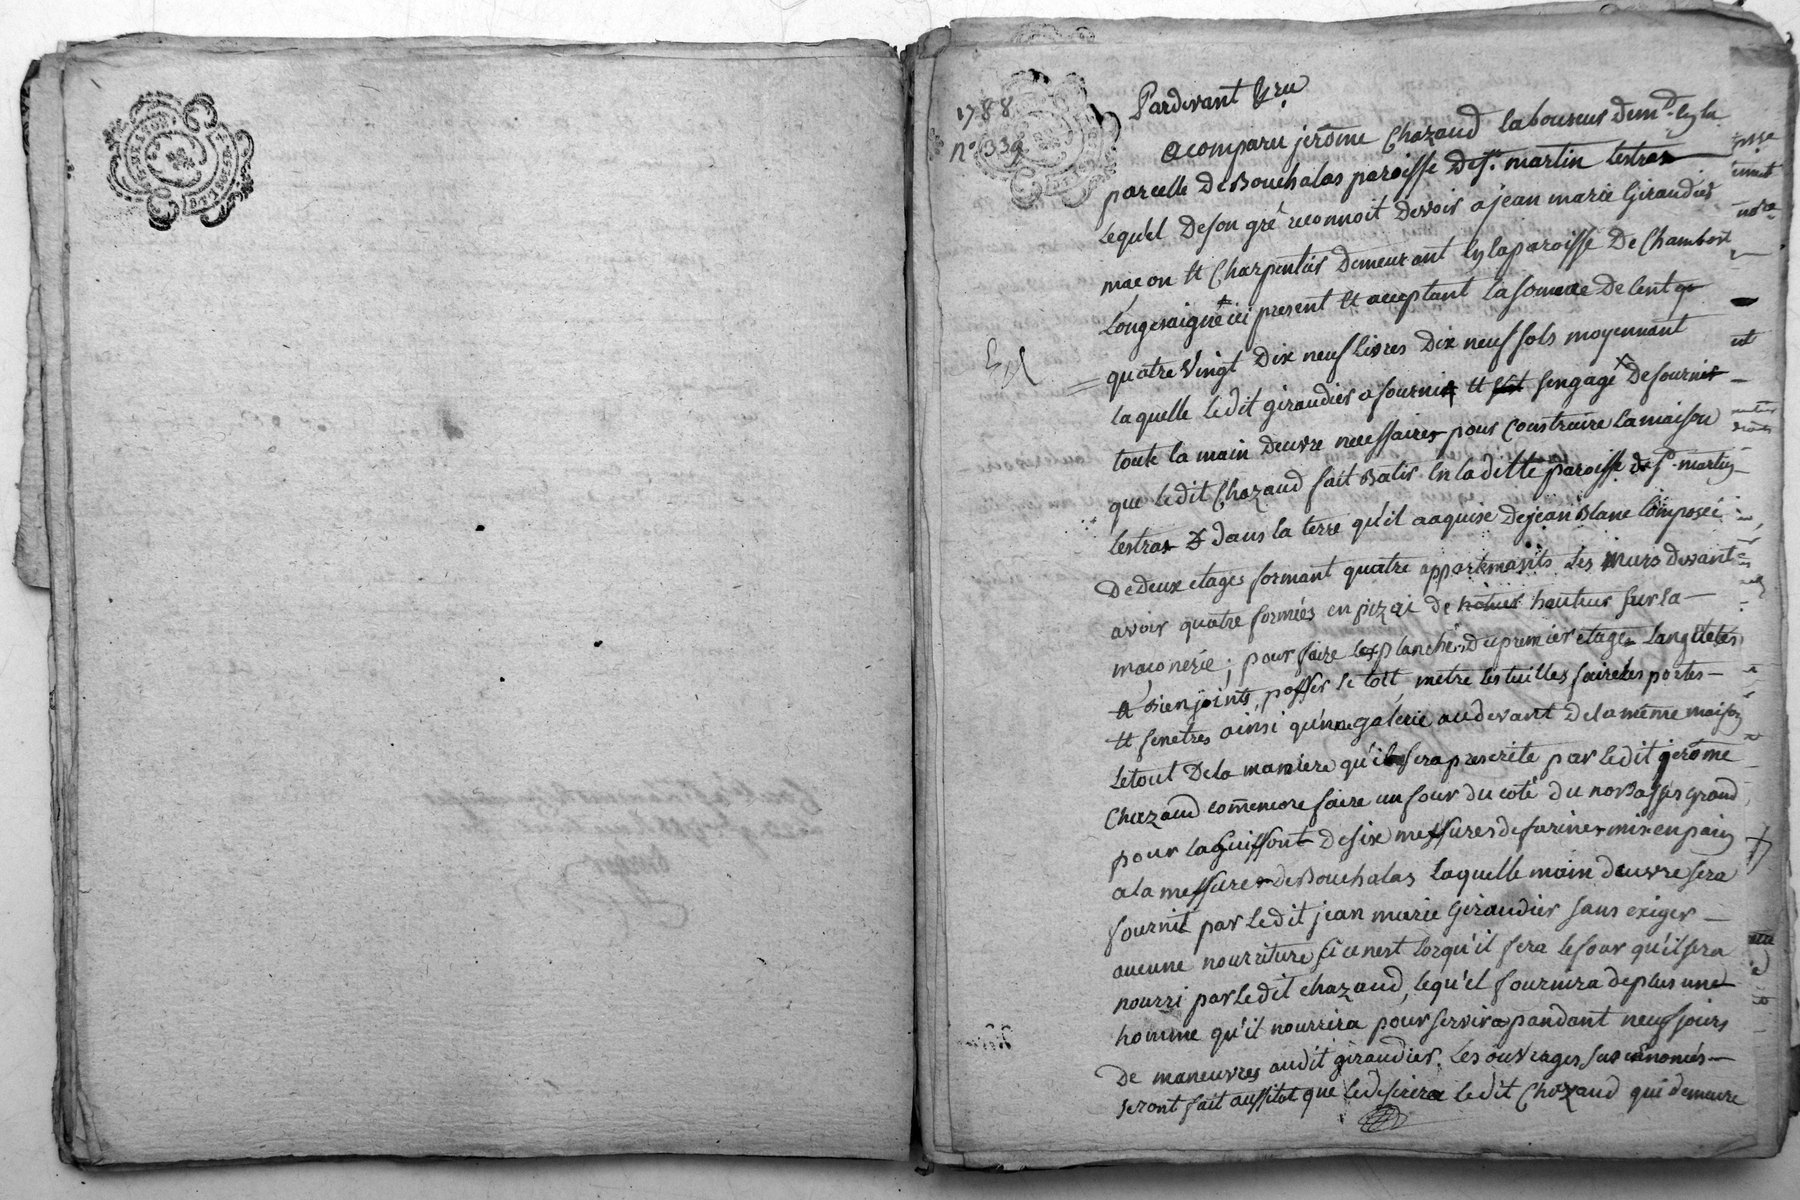 1788
n° 339
Pardevant
a comparu jerôme Chazaud laboureur dem.d en la
parcelle De Bouchalas paroisse De st. martin lestras
lequel De son gré reconnoit Devoir a jean marie Giraudier
macon et Charpentier Demeurant en la paroisse De Chambost
Longesaigne ici present et acceptant la somme De Cent
quatre Vingt Dix neuf livres Dix neuf sols moyennant
laquelle ledit giraudier a fournir et s'engage De fournir
toute la main Deuvre neccessaires pour Construire la maison
que ledit Chazaud fait Batir en la ditte paroisse De st. martin
lestras dans la terre qu'il a aquise De jean Blanc Composée
De deux etages formant quatre appartemants Les murs devant
avoir quatre formées en pizai de hauteur sur la
maconerie ; pour faire les planchés Du premier etage Languetés
et Bien joints, posser le toit metre les tuilles faire les portes
et fenetres ainsi qu'une galerie au devant De la même maison
Le tout De la maniere qu'il sera prescrite par ledit jerôme
Chazaud comme encore faire un four Du coté Du nor asses grand
pour la Cuissont De six messures de farines mis en pain
a la messure de Bouchalas Laquelle main Deuvre sera
fournit par ledit jean marie Giraudier sans exiger
aucune nourriture si ce nest lorqu'il fera le four qu'il sera
nourri par ledit chazaud, lequ'el fournira de plus une
homme qu'il nourrira pour servir pandant neuf jours
De maneuvres audit giraudier. Les ouvrages sus énoncés
seront fait aussitot que le desirera le dit Chazaud qui demeure